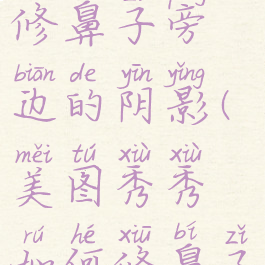 修鼻子旁
biān de yīn yǐng
边的阴影(
měi tú xiù xiù
美图秀秀
rú hé xiū bí zǐ
如何修鼻子